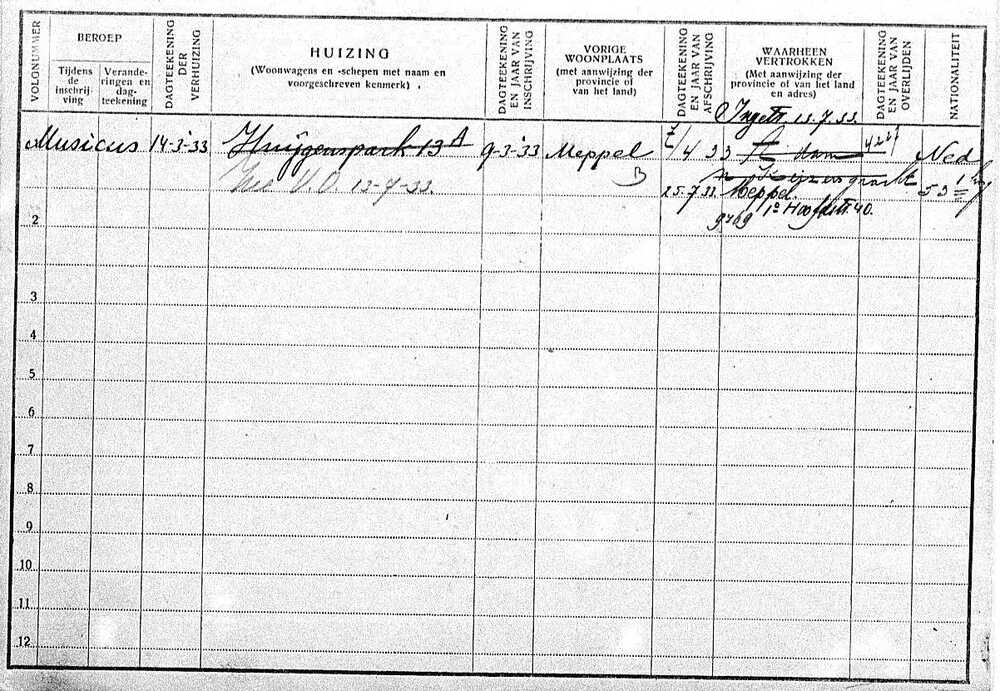 VOLGNUMMER
BEROEP
Tijdens de inschrij- ving
Verande- ringen en dag- teekening
DAGTEEKENING DER VERHUIZING
HUIZING
(Woonwagens en -schepen met naam en voorgeschreven kenmerk)
DAGTEEKENING EN JAAR VAN INSCHRIJVING
VORIGE WOONPLAATS
(met aanwijzing der provincie of van het land)
DAGTEEKENING EN JAAR VAN AFSCHRIJVING
WAARHEEN VERTROKKEN
(Met aanwijzing der provincie of van het land en adres)
DAGTEEKENING EN JAAR VAN OVERLIJDEN
NATIONALITEIT
Ingetr. 15.7.33.
Musicus 14-3-33 Huijgenspark 13A 9-3-33 Meppel /4 33 A'dam Ned
V.O. 12-7-33. B Keizersgracht
25.7.33 Meppel. 53
2 9769 1e Hoofdstr. 40.
3
4
5
6
7
8
9
10
11
12